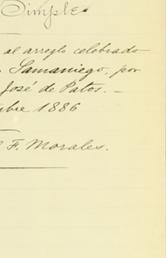 Simple
al arreglo celebrado
Samaniego, por
José de Patos. —
bre 1886
F. Morales.